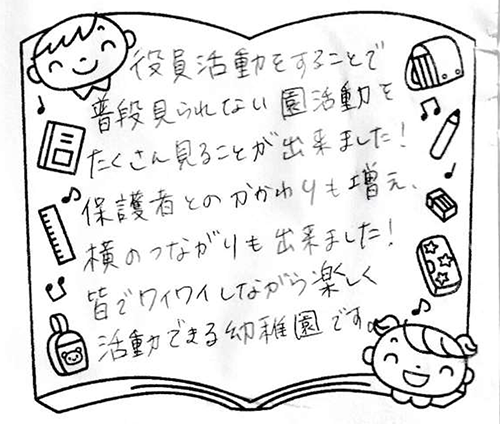 役員活動をすることで
普段見られない園活動を
たくさん見ることが出来ました!
保護者とのかかわりも増え、
横のつながりも出来ました!
皆でワイワイしながら楽しく
活動できる幼稚園です。